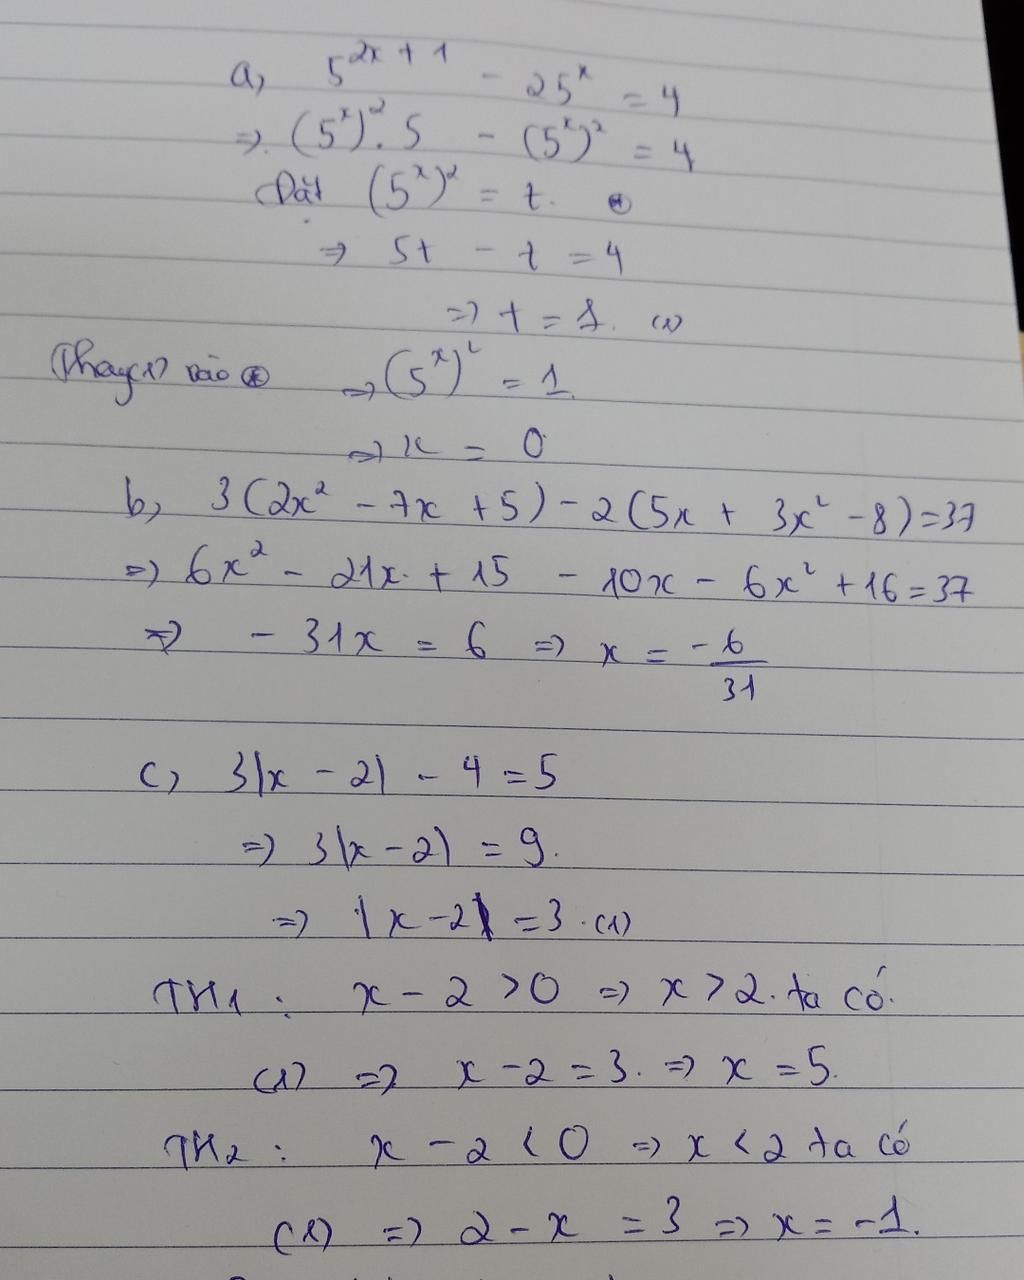 a, 5^{2x+1} - 25^x = 4
=> (5^x)^2 . 5 - (5^x)^2 = 4
Đặt (5^x)^2 = t. (*)
=> 5t - t = 4
=> t = 1. (1)
Thay (1) vào (*) => (5^x)^2 = 1.
=> x = 0
b, 3(2x² - 7x + 5) - 2(5x + 3x² - 8) = 37
=> 6x² - 21x + 15 - 10x - 6x² + 16 = 37
=> - 31x = 6 => x = -6/31
c, 3|x - 2| - 4 = 5
=> 3|x - 2| = 9.
=> |x - 2| = 3. (1)
TH1 : x - 2 > 0 => x > 2. ta có.
(1) => x - 2 = 3. => x = 5.
TH2 : x - 2 < 0 => x < 2 ta có
(1) => 2 - x = 3 => x = -1.